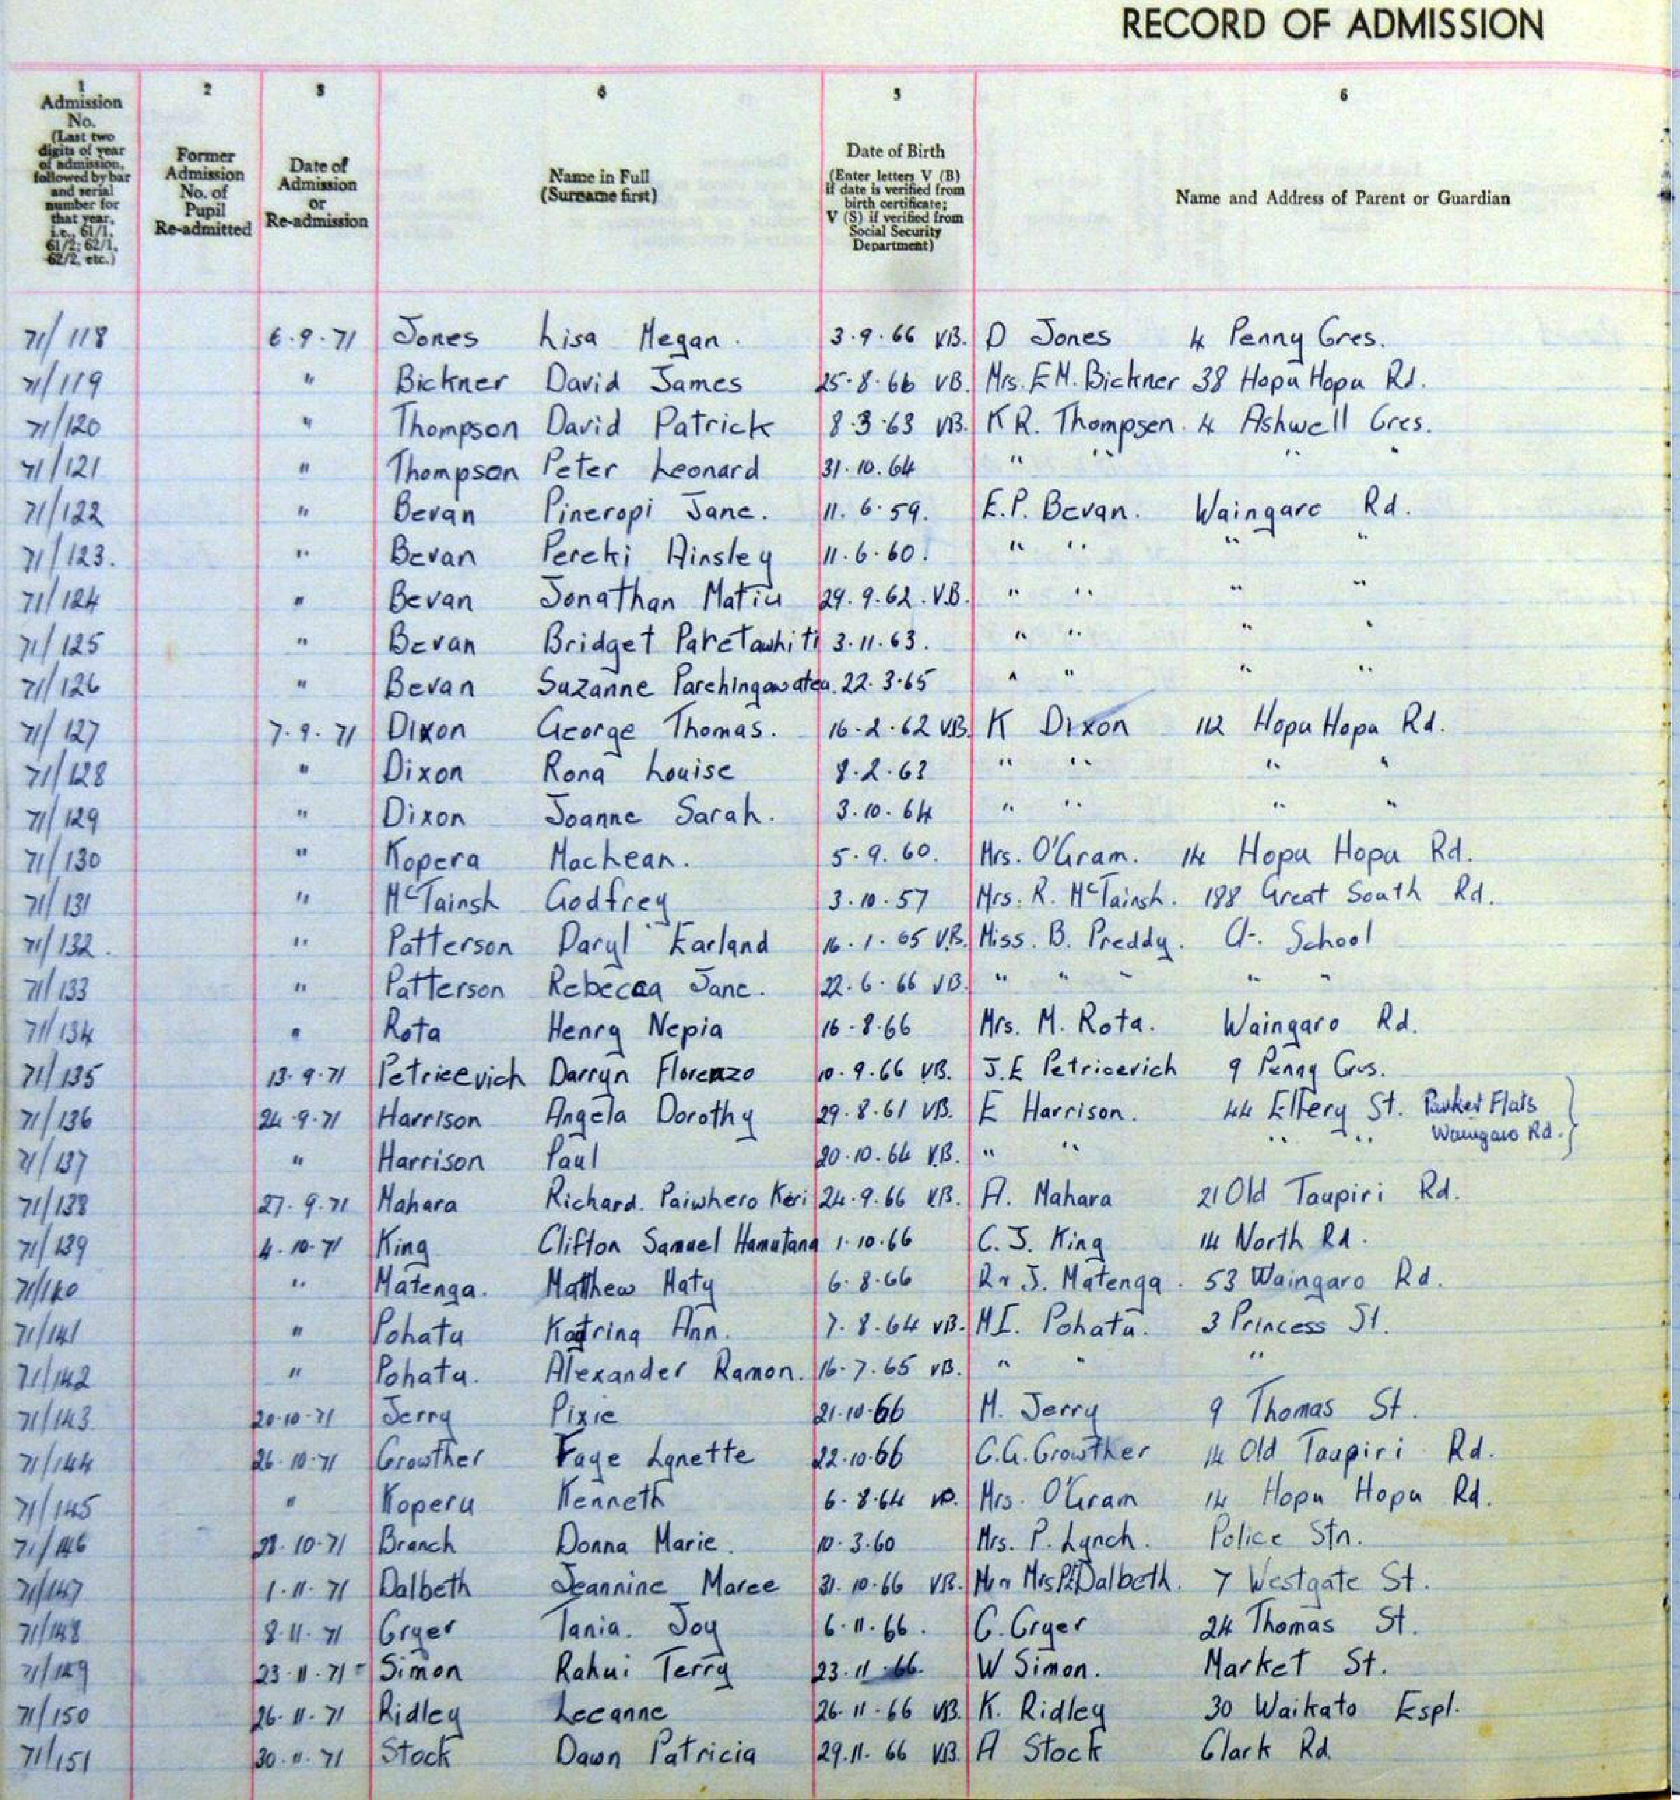 RECORD OF ADMISSION
1 2 3 4 5 6
Admission No. (Last two digits of year of admission, followed by bar and serial number for that year, i.e., 61/1, 61/2; 62/1, 62/2, etc.)
Former Admission No. of Pupil Re-admitted
Date of Admission or Re-admission
Name in Full (Surname first)
Date of Birth (Enter letters V (B) if date is verified from birth certificate; V (S) if verified from Social Security Department)
Name and Address of Parent or Guardian
71/118 6.9.71 Jones Lisa Megan. 3.9.66 VB. D Jones 4 Penny Cres.
71/119 " Bickner David James 25.8.66 VB. Mrs. E M. Bickner 38 Hopu Hopu Rd.
71/120 " Thompson David Patrick 8.3.63 VB. K R. Thompson. 4 Ashwell Cres.
71/121 " Thompson Peter Leonard 31.10.64 " " " "
71/122 " Bevan Pineropi Jane. 11.6.59. E.P. Bevan. Waingaro Rd.
71/123. " Bevan Pereki Ainsley 11.6.60. " " " "
71/124 " Bevan Jonathan Matiu 29.9.62. V.B. " " " "
71/125 " Bevan Bridget Paretawhiti 3.11.63. " " " "
71/126 " Bevan Suzanne Parehingawatea. 22.3.65 " " " "
71/127 7.9.71 Dixon George Thomas. 16.2.62 VB. K Dixon 112 Hopu Hopu Rd.
71/128 " Dixon Rona Louise 8.2.63 " " " "
71/129 " Dixon Joanne Sarah. 3.10.64 " " " "
71/130 " Kopera Machean. 5.9.60. Mrs. O'Gram. 14 Hopu Hopu Rd.
71/131 " McTainsh Godfrey 3.10.57 Mrs. R. McTainsh. 188 Great South Rd.
71/132. " Patterson Daryl Earland 16.1.65 V.B. Miss. B. Preddy. School
71/133 " Patterson Rebecca Jane. 22.6.66 VB. " " " " "
71/134 " Rota Henry Nepia 16.8.66 Mrs. M. Rota. Waingaro Rd.
71/135 13.9.71 Petricevich Darryn Florenzo 10.9.66 VB. J.E Petricevich 9 Penny Cres.
71/136 24.9.71 Harrison Angela Dorothy 29.8.61 VB. E Harrison. 44 Ellery St. Parker Flats
Waingaro Rd.
71/137 " Harrison Paul 20.10.64 V.B. " " " "
71/138 27.9.71 Mahara Richard. Paiwhero Keri 24.9.66 VB. A. Mahara 21 Old Taupiri Rd.
71/139 4.10.71 King Clifton Samuel Hamutana 1.10.66 C. J. King 14 North Rd.
71/140 " Matenga. Matthew Haty 6.8.66 R & J. Matenga. 53 Waingaro Rd.
71/141 " Pohatu Katrina Ann. 7.8.64 VB. M I. Pohatu. 3 Princess St.
71/142 " Pohatu. Alexander Ramon. 16.7.65 VB. " " "
71/143 20.10.71 Jerry Pixie 21.10.66 M. Jerry 9 Thomas St.
71/144 26.10.71 Crowther Faye Lynette 22.10.66 C.G. Crowther 14 Old Taupiri Rd.
71/145 " Koperu Kenneth 6.8.64 VB. Mrs. O'Gram 14 Hopu Hopu Rd.
71/146 28.10.71 Branch Donna Marie. 10.3.60 Mrs. P. Lynch. Police Stn.
71/147 1.11.71 Dalbeth Jeannine Maree 31.10.66 VB. Mrs Dalbeth. 7 Westgate St.
71/148 8.11.71 Cryer Tania. Joy 6.11.66. C. Cryer 24 Thomas St.
71/149 23.11.71 Simon Rahui Terry 23.11.66. W Simon. Market St.
71/150 26.11.71 Ridley Leeanne 26.11.66 VB. K. Ridley 30 Waikato Espl.
71/151 30.11.71 Stock Dawn Patricia 29.11.66 VB. A Stock Clark Rd.